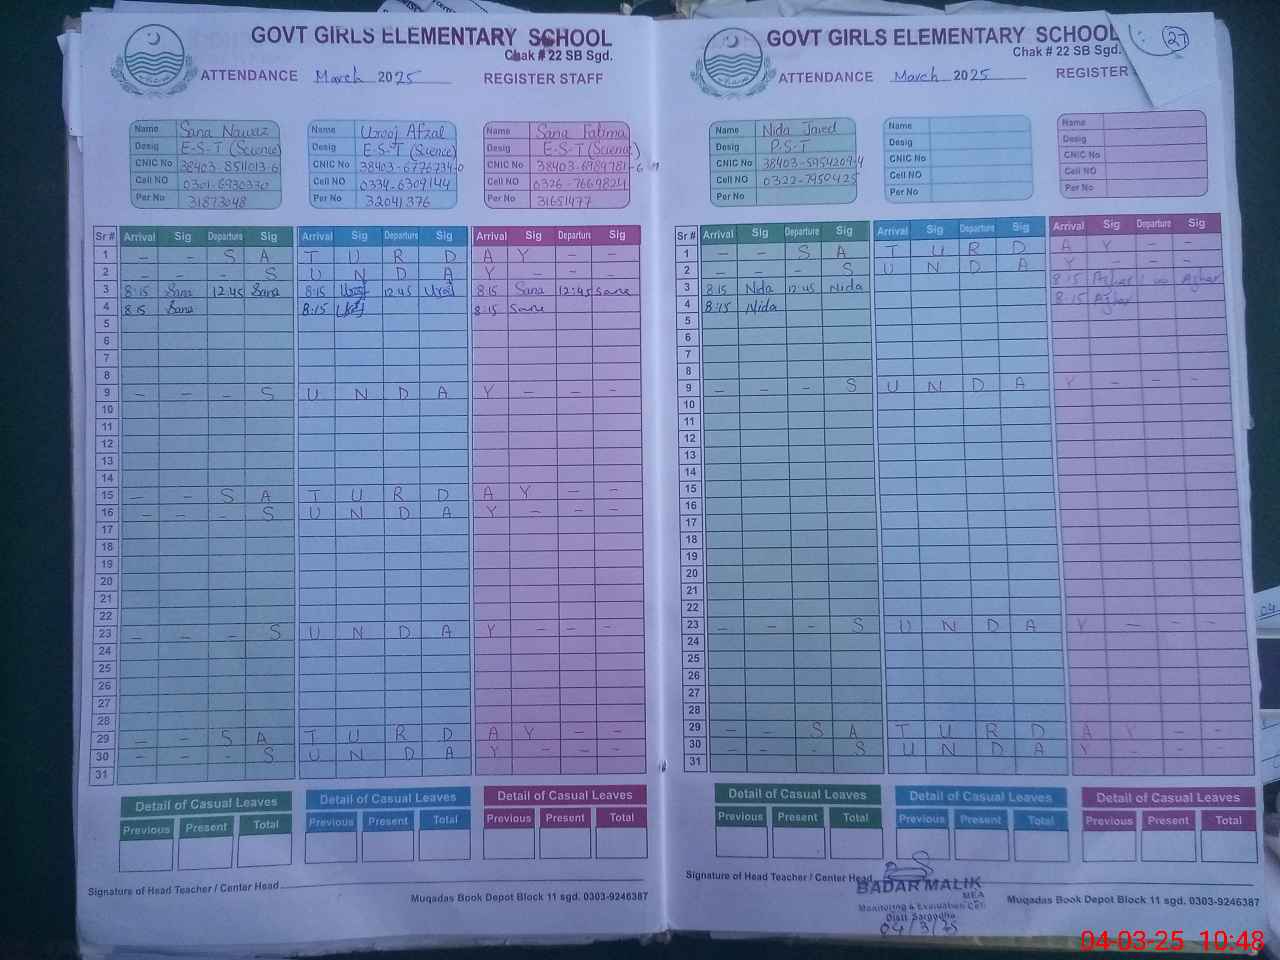 GOVT GIRLS ELEMENTARY SCHOOL
Chak # 22 SB Sgd.
ATTENDANCE March 2025 REGISTER STAFF
Name Sana Nawaz
Desig E-S-T (Science)
CNIC No 38403-8511013-6
Cell NO 0301-6930330
Per No 31873048
Name Urooj Afzal
Desig E-S-T (Science)
CNIC No 38403-6776734-0
Cell NO 0334-6309144
Per No 32041376
Name Sana Fatima
Desig E-S-T (Science)
CNIC No 38403-6989781-6
Cell NO 0326-7669824
Per No 31651477
Sr # Arrival Sig Departure Sig Arrival Sig Departure Sig Arrival Sig Departure Sig
1 - - S A T U R D A Y - -
2 - - - S U N D A Y - - -
3 8:15 Sana 12:45 Sana 8:15 Urooj 12:45 Urooj 8:15 Sana 12:45 Sana
4 8:15 Sana 8:15 Urooj 8:15 Sana
5
6
7
8
9 - - - S U N D A Y - - -
10
11
12
13
14
15 - - S A T U R D A Y - -
16 - - - S U N D A Y - - -
17
18
19
20
21
22
23 - - - S U N D A Y - -
24
25
26
27
28
29 - - S A T U R D A Y - -
30 - - - S U N D A Y - - -
31
Detail of Casual Leaves Detail of Casual Leaves Detail of Casual Leaves
Previous Present Total Previous Present Total Previous Present Total
Signature of Head Teacher / Center Head
Muqadas Book Depot Block 11 sgd. 0303-9246387
GOVT GIRLS ELEMENTARY SCHOOL
27
Chak # 22 SB Sgd.
ATTENDANCE March 2025 REGISTER
Name Nida Javed
Desig P.S.T
CNIC No 38403-5954209-4
Cell NO 0322-7950425
Per No
Name
Desig
CNIC No
Cell NO
Per No
Name
Desig
CNIC No
Cell NO
Per No
Sr # Arrival Sig Departure Sig Arrival Sig Departure Sig Arrival Sig Departure Sig
1 - - S A T U R D A Y - -
2 - - - S U N D A Y - - -
3 8:15 Nida 12:45 Nida 8:15 Azhar Azhar
4 8:15 Nida 8:15 Azhar
5
6
7
8
9 - - - S U N D A Y - - -
10
11
12
13
14
15
16
17
18
19
20
21
22
23 - - - S U N D A Y - - -
24
25
26
27
28
29 - - S A T U R D A Y - -
30 - - - S U N D A Y - - -
31
Detail of Casual Leaves Detail of Casual Leaves Detail of Casual Leaves
Previous Present Total Previous Present Total Previous Present Total
Signature of Head Teacher / Center Head
BADAR MALIK
MEA
Monitoring & Evaluation Cell
Distt Sargodha
04/3/25
Muqadas Book Depot Block 11 sgd. 0303-9246387
04-03-25 10:48